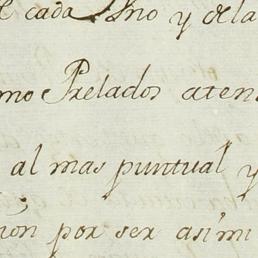 cada Uno y de la
mo Prelados aten
al mas puntual y
ion por ser asimi